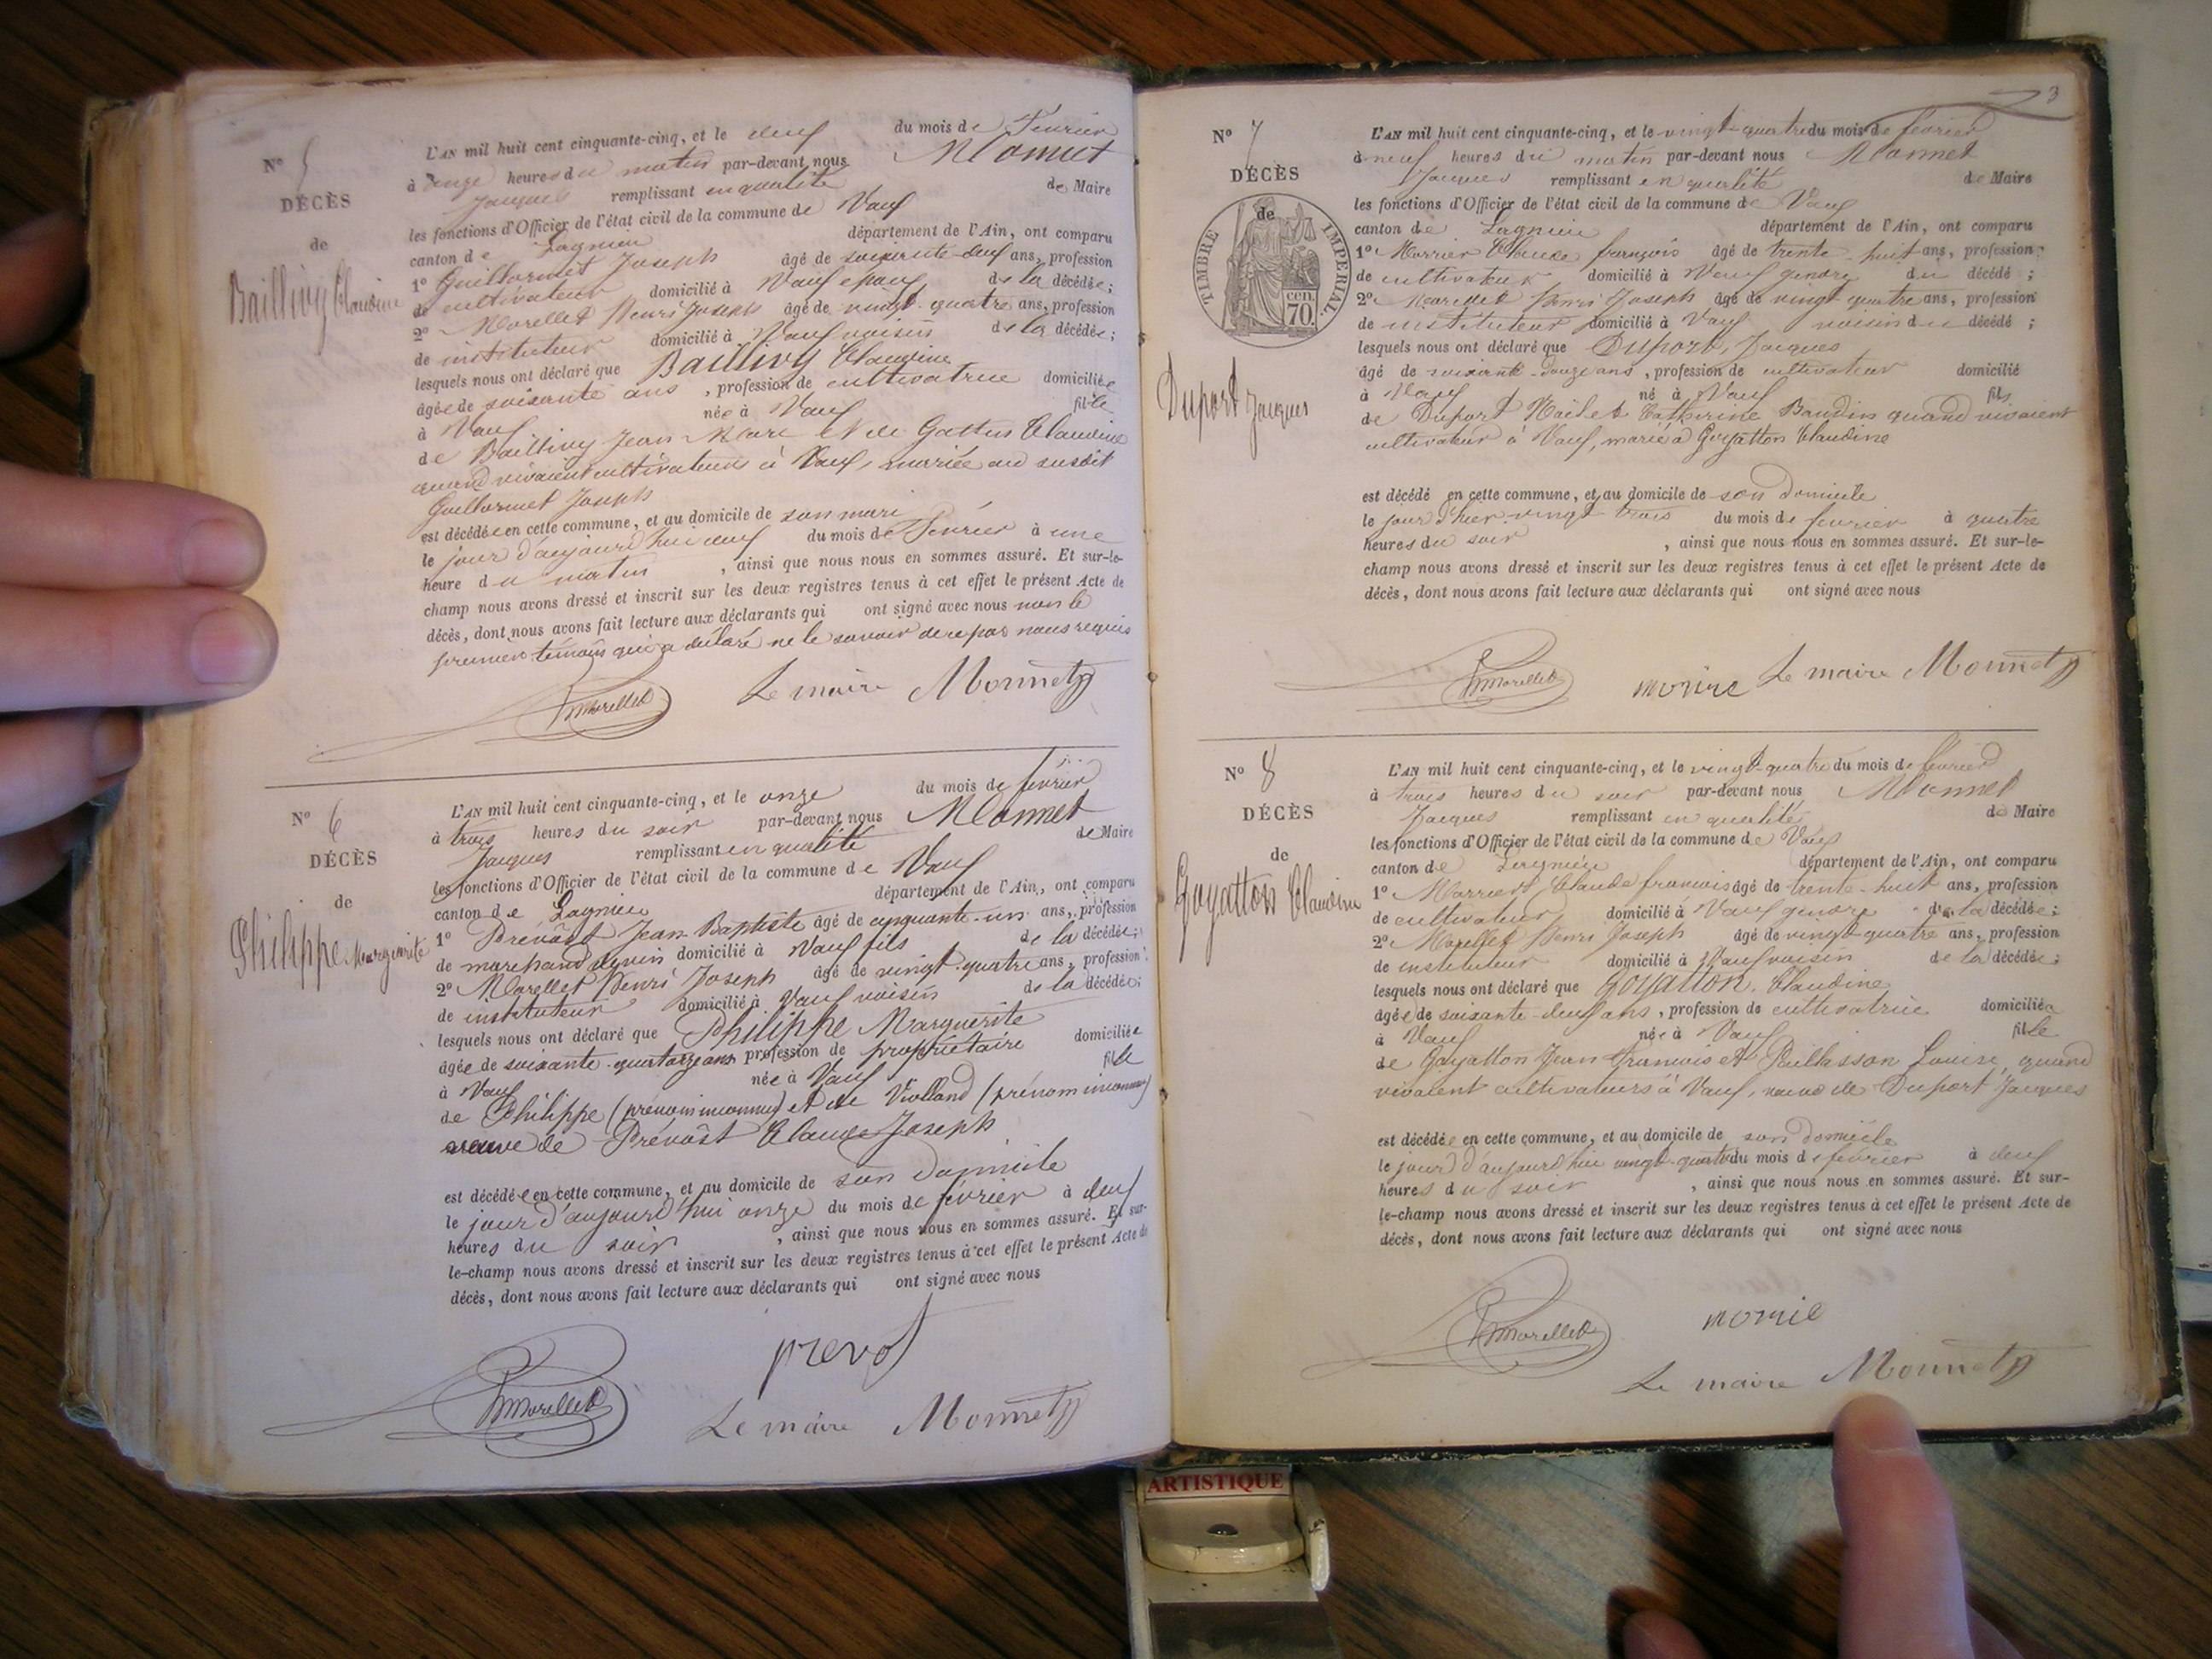 Nº 5
DÉCÈS
de
Baillivy Claudine
L'AN mil huit cent cinquante-cinq, et le deux du mois de Février
à onze heures du matin par-devant nous Monnet
Jacques remplissant en qualité de Maire
les fonctions d'Officier de l'état civil de la commune de Vaux
canton de Lagnieu département de l'Ain, ont comparu
1º Guillermet Joseph âgé de soixante-deux ans, profession
de cultivateur domicilié à Vaux époux de la décédée;
2º Morellet Henri Joseph âgé de vingt-quatre ans, profession
de instituteur domicilié à Vaux voisin de la décédée;
lesquels nous ont déclaré que Baillivy Claudine
âgée de soixante ans, profession de cultivatrice domiciliée
à Vaux née à Vaux fille
de Baillivy Jean-Marc et de Gattus Claudine
quand vivaient cultivateurs à Vaux, mariée au susdit
Guillermet Joseph
est décédée en cette commune, et au domicile de son mari
le jour d'aujourd'hui deux du mois de Février à une
heure du matin, ainsi que nous nous en sommes assuré. Et sur-le-
champ nous avons dressé et inscrit sur les deux registres tenus à cet effet le présent Acte de
décès, dont nous avons fait lecture aux déclarants qui ont signé avec nous non le
premier témoin qui a déclaré ne le savoir de ce par nous requis
HMorellet Le maire Monnet
Nº 6
DÉCÈS
de
Philippe Marguerite
L'AN mil huit cent cinquante-cinq, et le onze du mois de février
à trois heures du soir par-devant nous Monnet
Jacques remplissant en qualité de Maire
les fonctions d'Officier de l'état civil de la commune de Vaux
canton de Lagnieu département de l'Ain, ont comparu
1º Prévôst Jean Baptiste âgé de cinquante-un ans, profession
de marchand de vin domicilié à Vaux fils de la décédée;
2º Morellet Henri Joseph âgé de vingt-quatre ans, profession
de instituteur domicilié à Vaux voisin de la décédée;
lesquels nous ont déclaré que Philippe Marguerite
âgée de soixante-quatorze ans profession de propriétaire domiciliée
à Vaux née à Vaux fille
de Philippe (prénom inconnu) et de Violland (prénom inconnu)
veuve de Prévôst Claude Joseph
est décédée en cette commune, et au domicile de son domicile
le jour d'aujourd'hui onze du mois de février à deux
heures du soir, ainsi que nous nous en sommes assuré. Et sur-
le-champ nous avons dressé et inscrit sur les deux registres tenus à cet effet le présent Acte de
décès, dont nous avons fait lecture aux déclarants qui ont signé avec nous
prevot
HMorellet Le maire Monnet
3
Nº 7
DÉCÈS
de
TIMBRE IMPERIAL
70 cen.
Duport Jacques
L'AN mil huit cent cinquante-cinq, et le vingt-quatre du mois de février
à neuf heures du matin par-devant nous Monnet
Jacques remplissant en qualité de Maire
les fonctions d'Officier de l'état civil de la commune de Vaux
canton de Lagnieu département de l'Ain, ont comparu
1º Morrier Claude françois âgé de trente-huit ans, profession
de cultivateur domicilié à Vaux gendre du décédé;
2º Morellet Henri Joseph âgé de vingt-quatre ans, profession
de instituteur domicilié à Vaux voisin du décédé;
lesquels nous ont déclaré que Duport Jacques
âgé de soixante-douze ans, profession de cultivateur domicilié
à Vaux né à Vaux fils
de Duport et Catherine Baudin quand vivaient
cultivateur à Vaux, marié à Goyatton Claudine
est décédé en cette commune, et au domicile de son domicile
le jour d'hier vingt-trois du mois de février à quatre
heures du soir, ainsi que nous nous en sommes assuré. Et sur-le-
champ nous avons dressé et inscrit sur les deux registres tenus à cet effet le présent Acte de
décès, dont nous avons fait lecture aux déclarants qui ont signé avec nous
HMorellet Le maire Monnet
Nº 8
DÉCÈS
de
Goyatton Claudine
L'AN mil huit cent cinquante-cinq, et le vingt-quatre du mois de février
à trois heures du soir par-devant nous Monnet
Jacques remplissant en qualité de Maire
les fonctions d'Officier de l'état civil de la commune de Vaux
canton de Lagnieu département de l'Ain, ont comparu
1º Morrier Claude francois âgé de trente-huit ans, profession
de cultivateur domicilié à Vaux gendre de la décédée;
2º Morellet Henri Joseph âgé de vingt-quatre ans, profession
de instituteur domicilié à Vaux voisin de la décédée;
lesquels nous ont déclaré que Goyatton Claudine
âgée de soixante-deux ans, profession de cultivatrice domiciliée
à Vaux née à Vaux fille
de Goyatton Jean francois et Louise, quand
vivaient cultivateurs à Vaux, veuve de Duport Jacques
est décédée en cette commune, et au domicile de son domicile
le jour d'aujourd'hui vingt-quatre du mois de février à deux
heures du soir, ainsi que nous nous en sommes assuré. Et sur-
le-champ nous avons dressé et inscrit sur les deux registres tenus à cet effet le présent Acte de
décès, dont nous avons fait lecture aux déclarants qui ont signé avec nous
HMorellet
Le maire Monnet
ARTISTIQUE